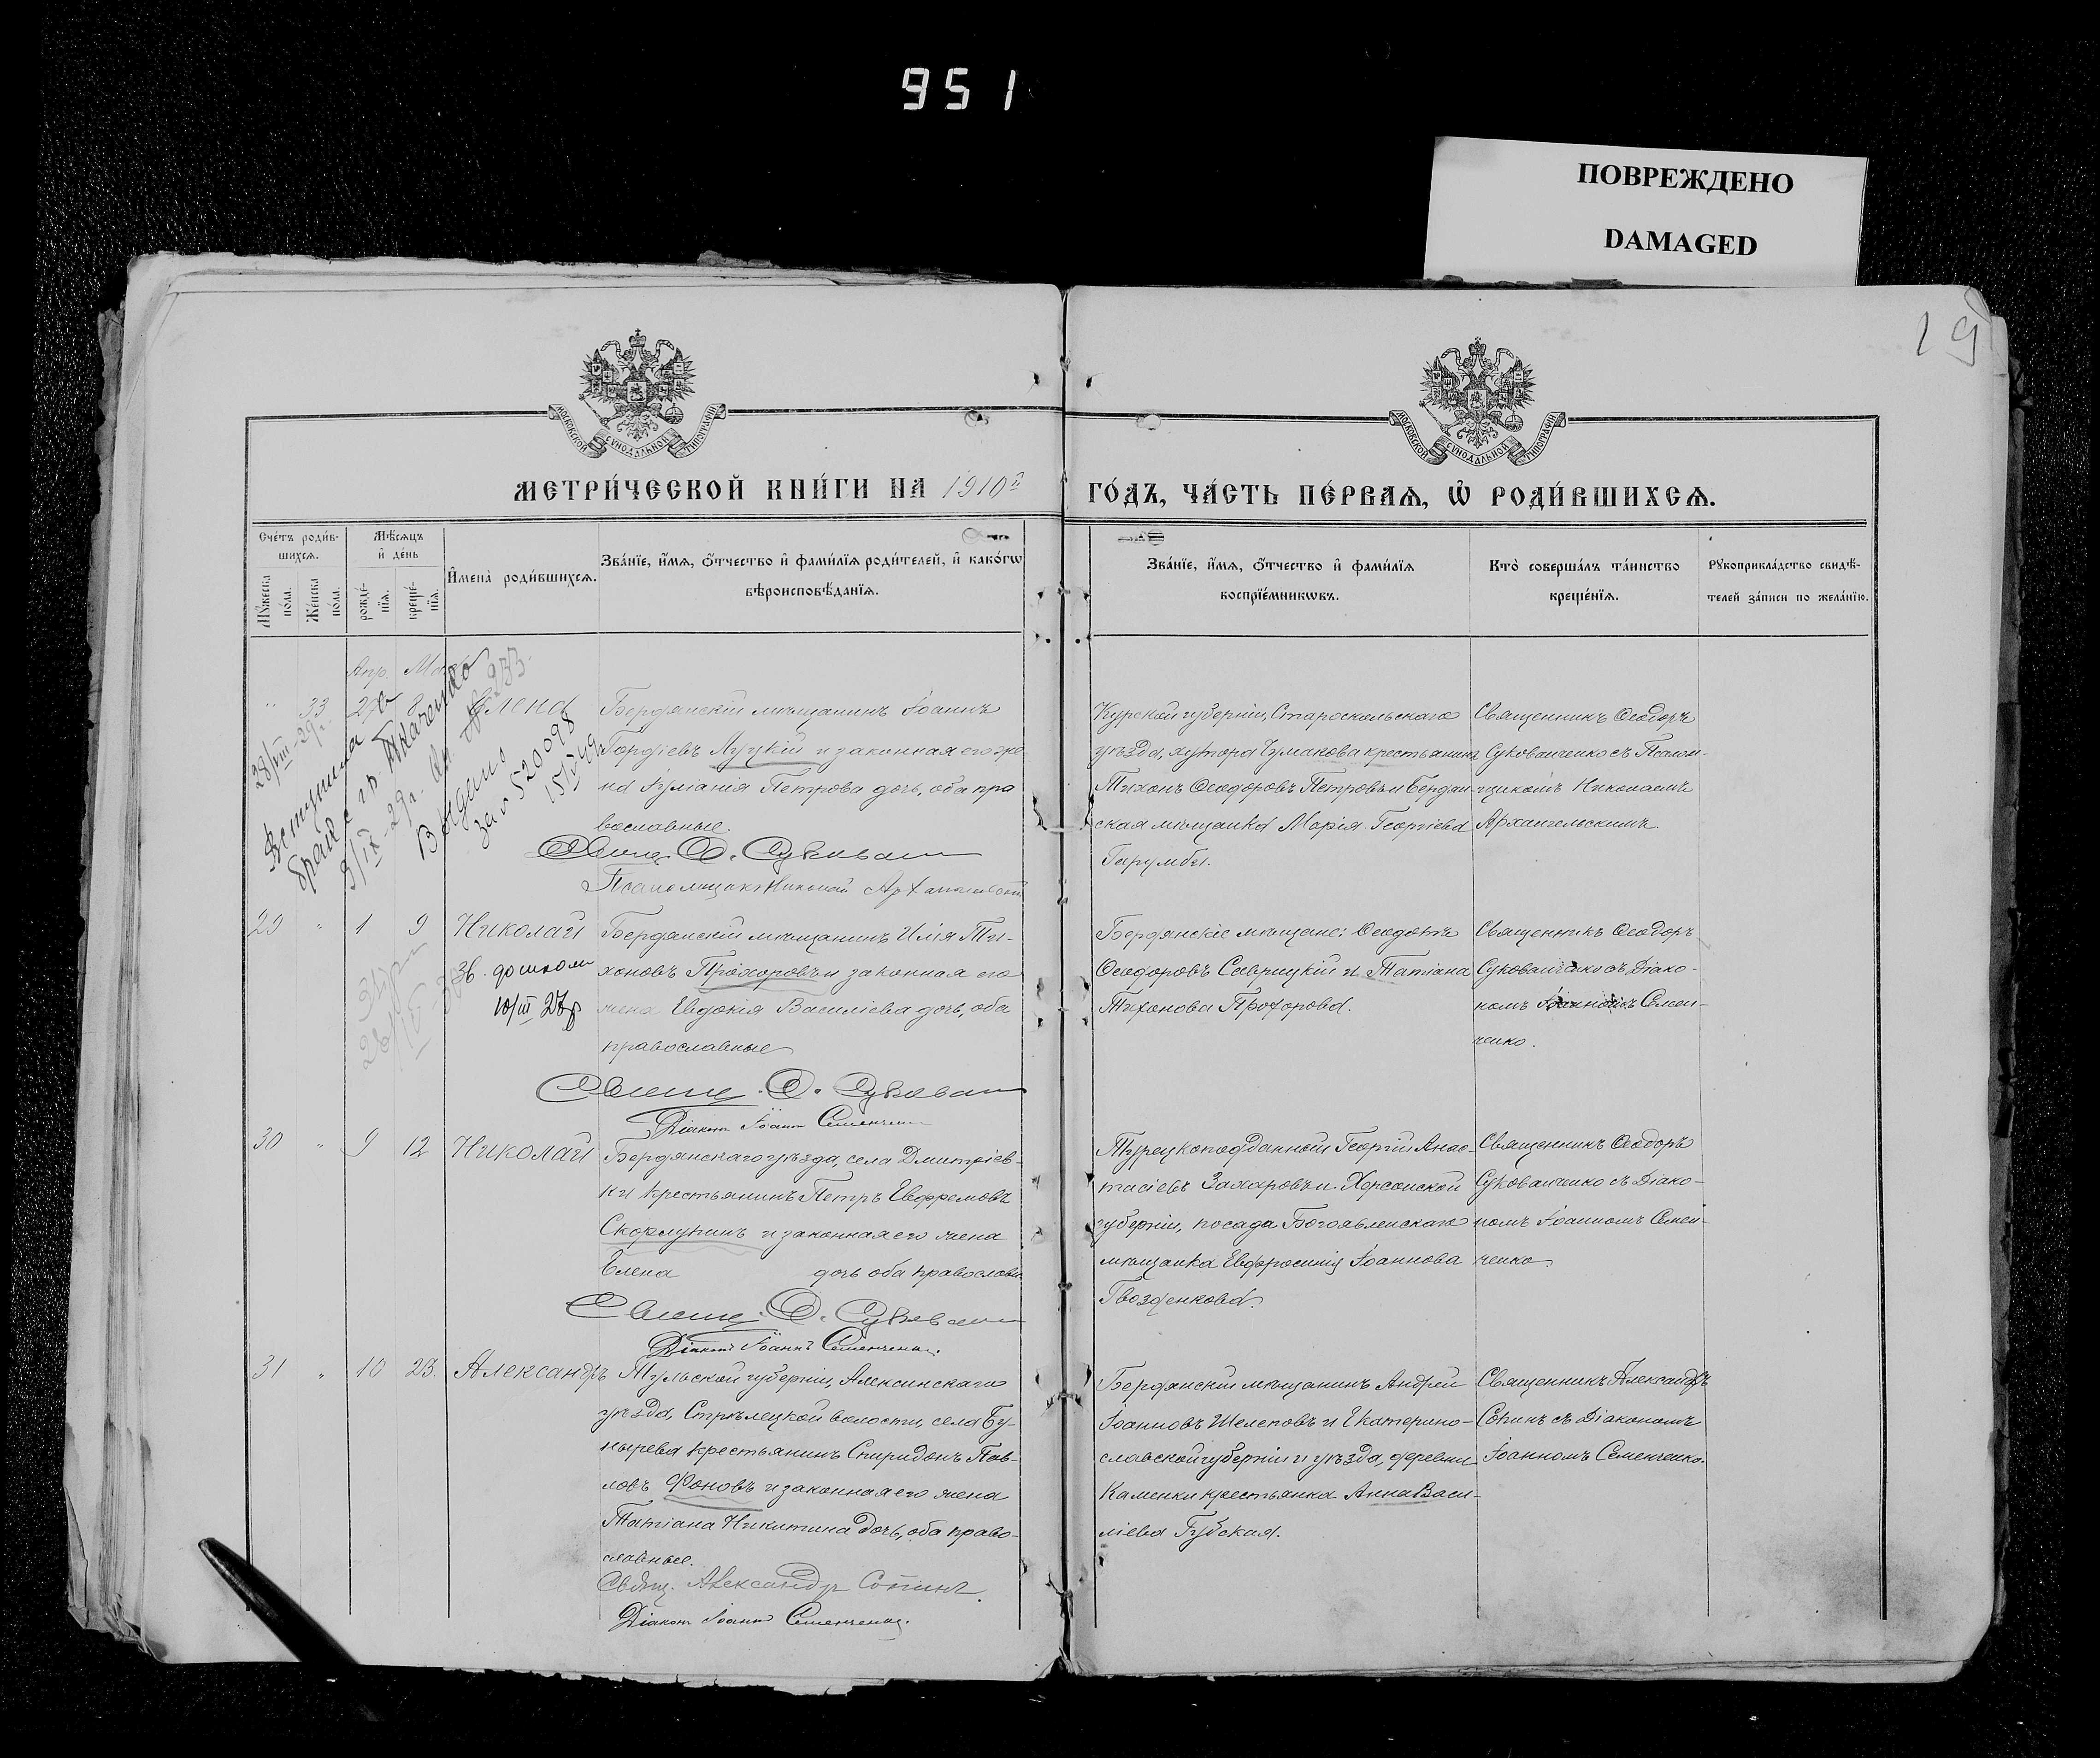 951
ПОВРЕЖДЕНО
DAMAGED
19
МОСКОВСКОЙ СѴНОДАЛЬНОЙ ТИПОГРАФІИ
МОСКОВСКОЙ СѴНОДАЛЬНОЙ ТИПОГРАФІИ
МЕТРИ́ЧЕСКОЙ КНИ́ГИ НА 1910й
ГО́ДЪ, ЧА́СТЬ ПЕ́РВАѦ, Ѡ҆ РОДИ́ВШИХСѦ.
Сче́тъ роди́в-
шихсѧ.
Мꙋ́жеска
по́ла.
Же́нска
по́ла.
Мѣ́сѧцъ
и҆ де́нь
рожде́-
нїѧ.
креще́-
нїѧ.
И҆мена̀ роди́вшихсѧ.
Зва́нїе, и҆́мѧ, ѻ҆́тчество и҆ фами́лїѧ роди́телей, и҆ како́гѡ
вѣроисповѣ́данїѧ.
Зва́нїе, и҆́мѧ, ѻ҆́тчество и҆ фами́лїѧ
воспрїе́мникѡвъ.
Кто̀ соверша́лъ та́инство
креще́нїѧ.
Рꙋкоприкла́дство свидѣ́-
телей за́писи по жела́нїю.
Апр.
" 33
8
Елена
Бердянскій мѣщанинъ Іоаннъ
Гордіевъ Луцкій и законная его же
на Петрова дочь, оба пра
вославные.
Свящ. Ѳ. Сукован
Псаломщикъ Николай Архангельскій
28/III 29г.
Вступила в
брак с гр. Ткаченко
9/IX-29г.
Выдано
за № 520098
Курской губерніи, Староскольскаго
уѣзда, хутора Чумакова крестьянинъ
Тихонъ Ѳеодоровъ Петровъ и Бердян-
ская мѣщанка Марія Георгіева
Гарумбы.
Священникъ Ѳеодоръ
Сукованченко съ Псалом-
щикомъ Николаемъ
Архангельскимъ.
29 " 1 9 Николай
Зв. до школи
10/III 27р
Бердянскій мѣщанинъ Илія Ти-
хоновъ Прохоровъ и законная его
жена Евдокія Василіева дочь, оба
православные
Свящ. Ѳ. Сукован
Діаконъ Іоаннъ Семенченко
Бердянскіе мѣщане: Ѳеодотъ
Ѳеодоровъ Саврицкій и Татіана
Тихонова Прохорова.
Священникъ Ѳеодоръ
Сукованченко съ Діако-
номъ Іоанномъ Семен-
ченко.
30 " 9 12 Николай
Бердянскаго уѣзда, села Дмитріев-
ки крестьянинъ Петръ Евфремовъ
Скорлупинъ и законная его жена
Елена дочь оба православн.
Свящ. Ѳ. Сукован
Діаконъ Іоаннъ Семенченко.
Турецкоподданный Георгій Анас-
тасіевъ Захаровъ и Херсонской
губерніи, посада Богоявленскаго
мѣщанка Евфросинія Іоаннова
Гвозденкова.
Священникъ Ѳеодоръ
Сукованченко съ Діако-
номъ Іоанномъ Семен-
ченко.
31 " 10 23. Александръ
Тульской губерніи, Алексинскаго
уѣзда, Стрѣлецкой волости, села Бу-
нырева крестьянинъ Спиридонъ Пав-
ловъ Фоновъ и законная его жена
Татіана Никитина дочь, оба право-
славные.
Свящ. Александръ Сопинъ.
Діаконъ Іоаннъ Семенченко.
Бердянскій мѣщанинъ Андрей
Іоанновъ Шелеповъ и Екатерино-
славской губерніи и уѣзда, деревни
Каменки крестьянка Анна Васи-
ліева Губская.
Священникъ Александръ
Сопинъ съ Діакономъ
Іоанномъ Семенченко.